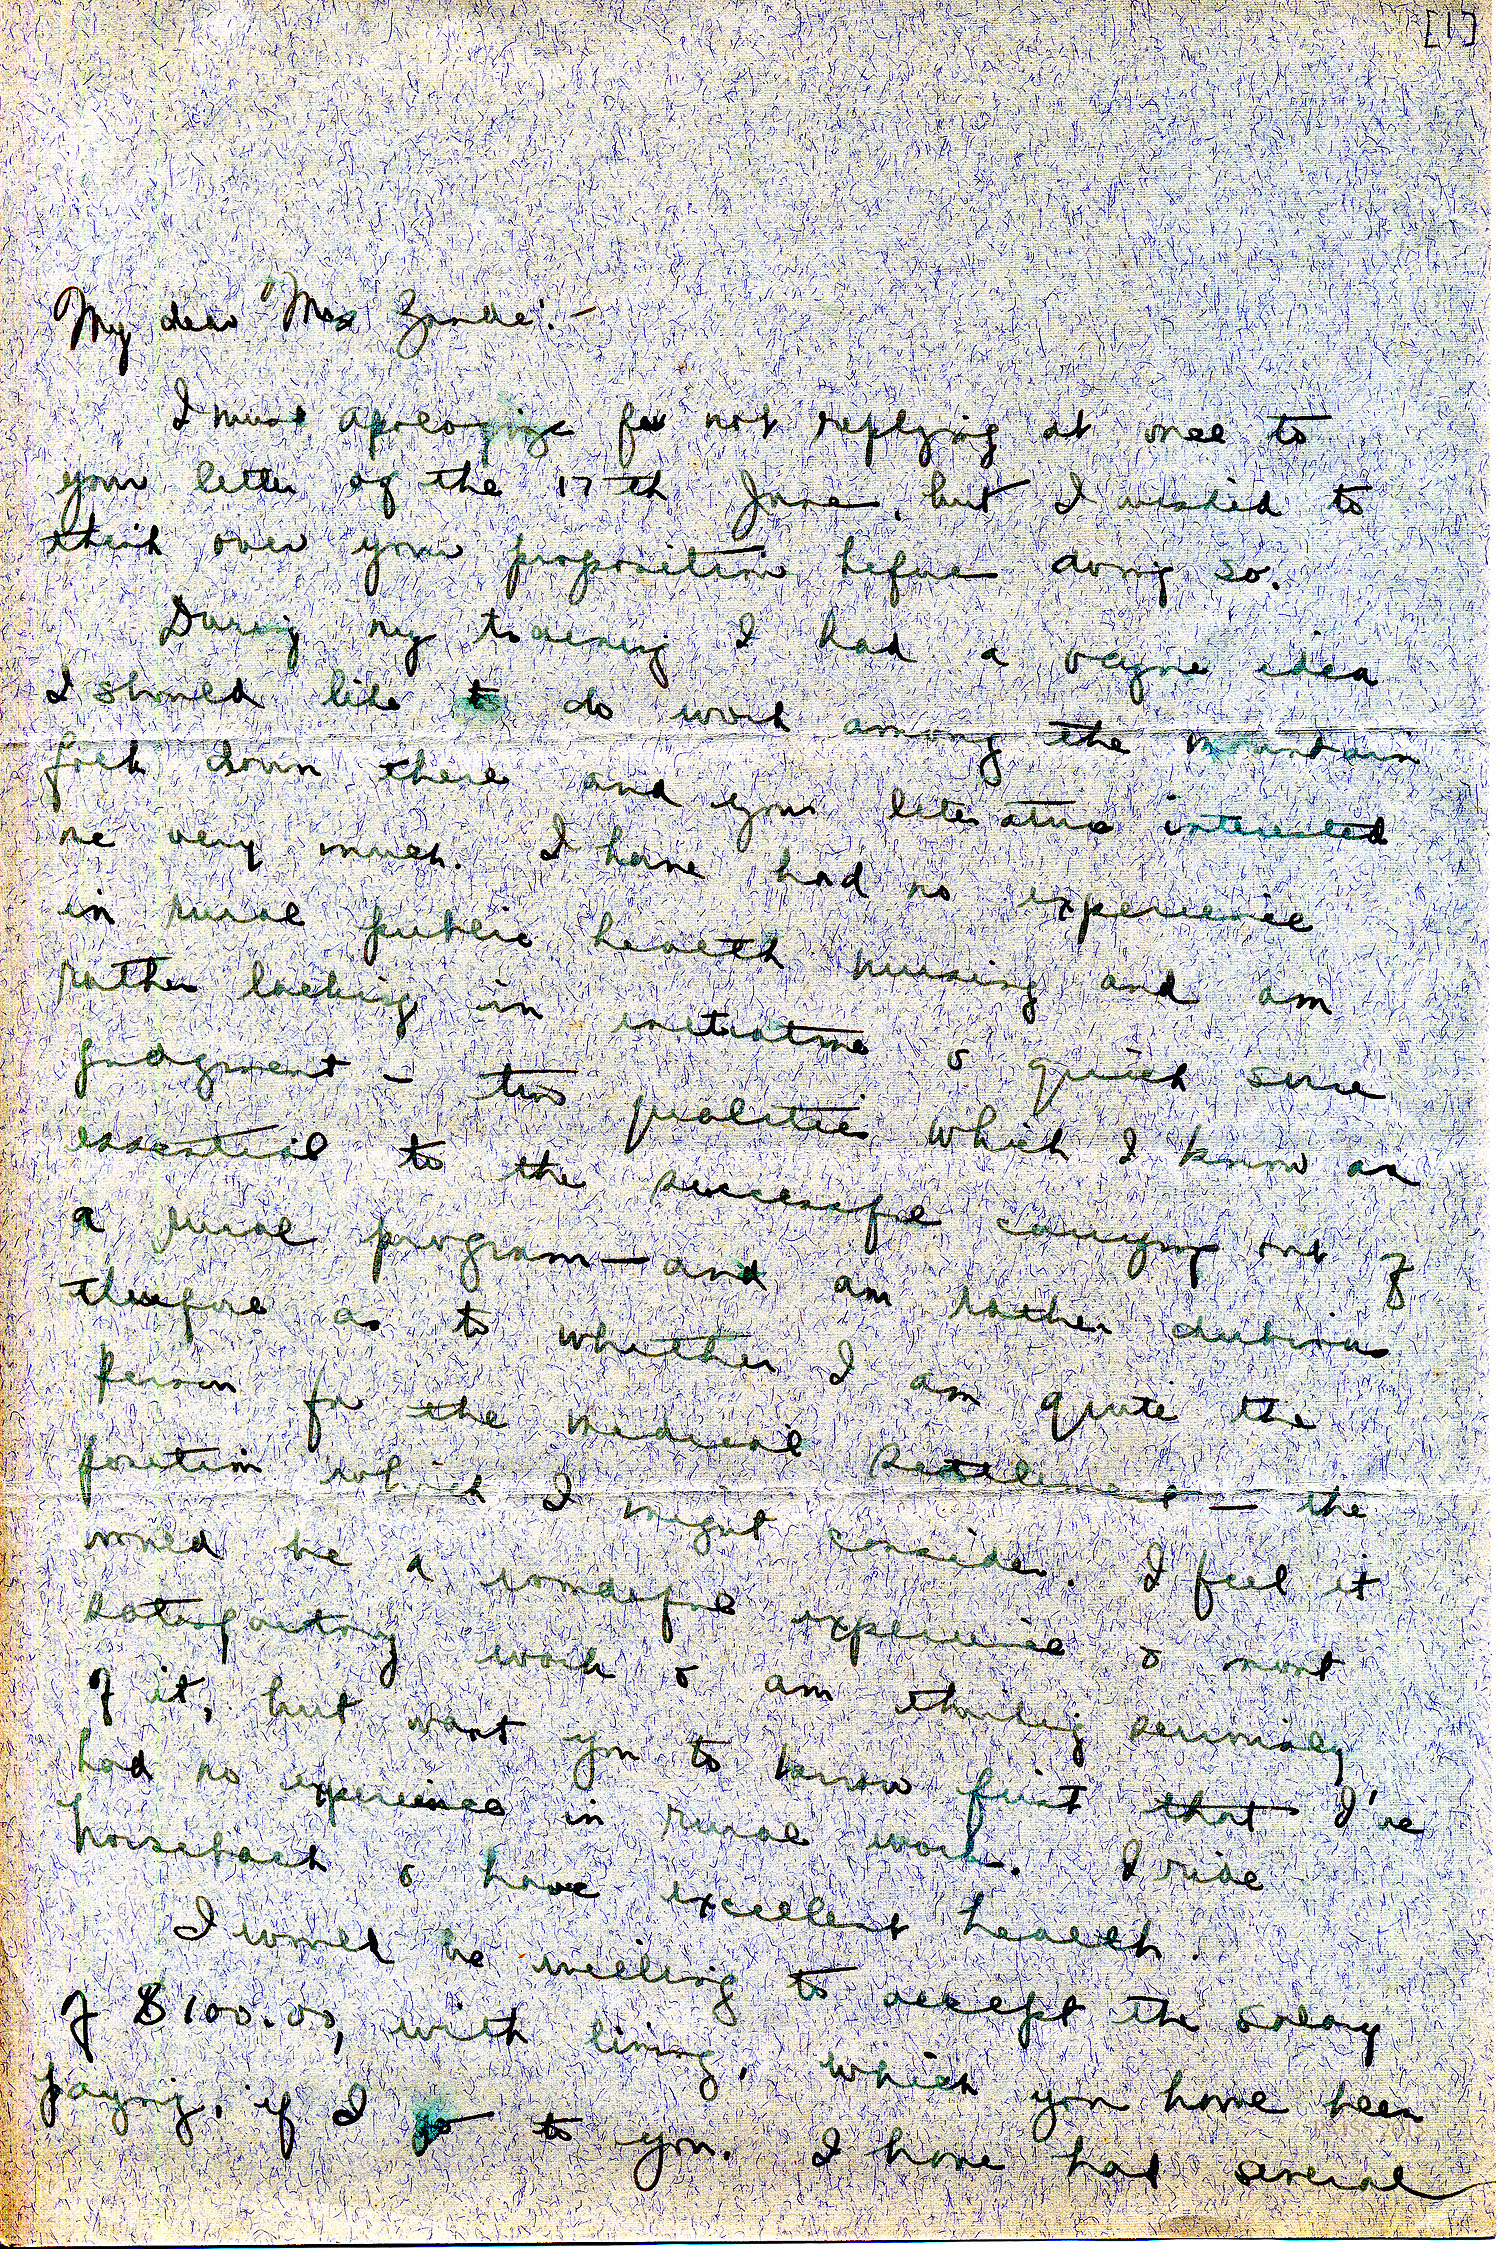 [1]
My dear Mrs Zande:-
I must apologize for not replying at once to
your letter of the 17th June, but I wished to
think over your proposition before doing so.
During my training I had a vague idea
I should like to do work among the mountain
folk down there and your literature interested
me very much. I have had no experience
in rural public health nursing and am
rather lacking in initiative & quick sure
judgment - two qualities which I know are
essential to the successful carrying out of
a rural program - and am rather dubious
therefore as to whether I am quite the
person for the medical settlement - the
position which I might consider. I feel it
would be a wonderful experience & most
satisfactory work & am thinking seriously
of it, but want you to know first that I've
had no experience in rural work. I ride
horseback & have excellent health.
I would be willing to accept the salary
of $100.00, with living, which you have been
paying, if I go to you. I have had several